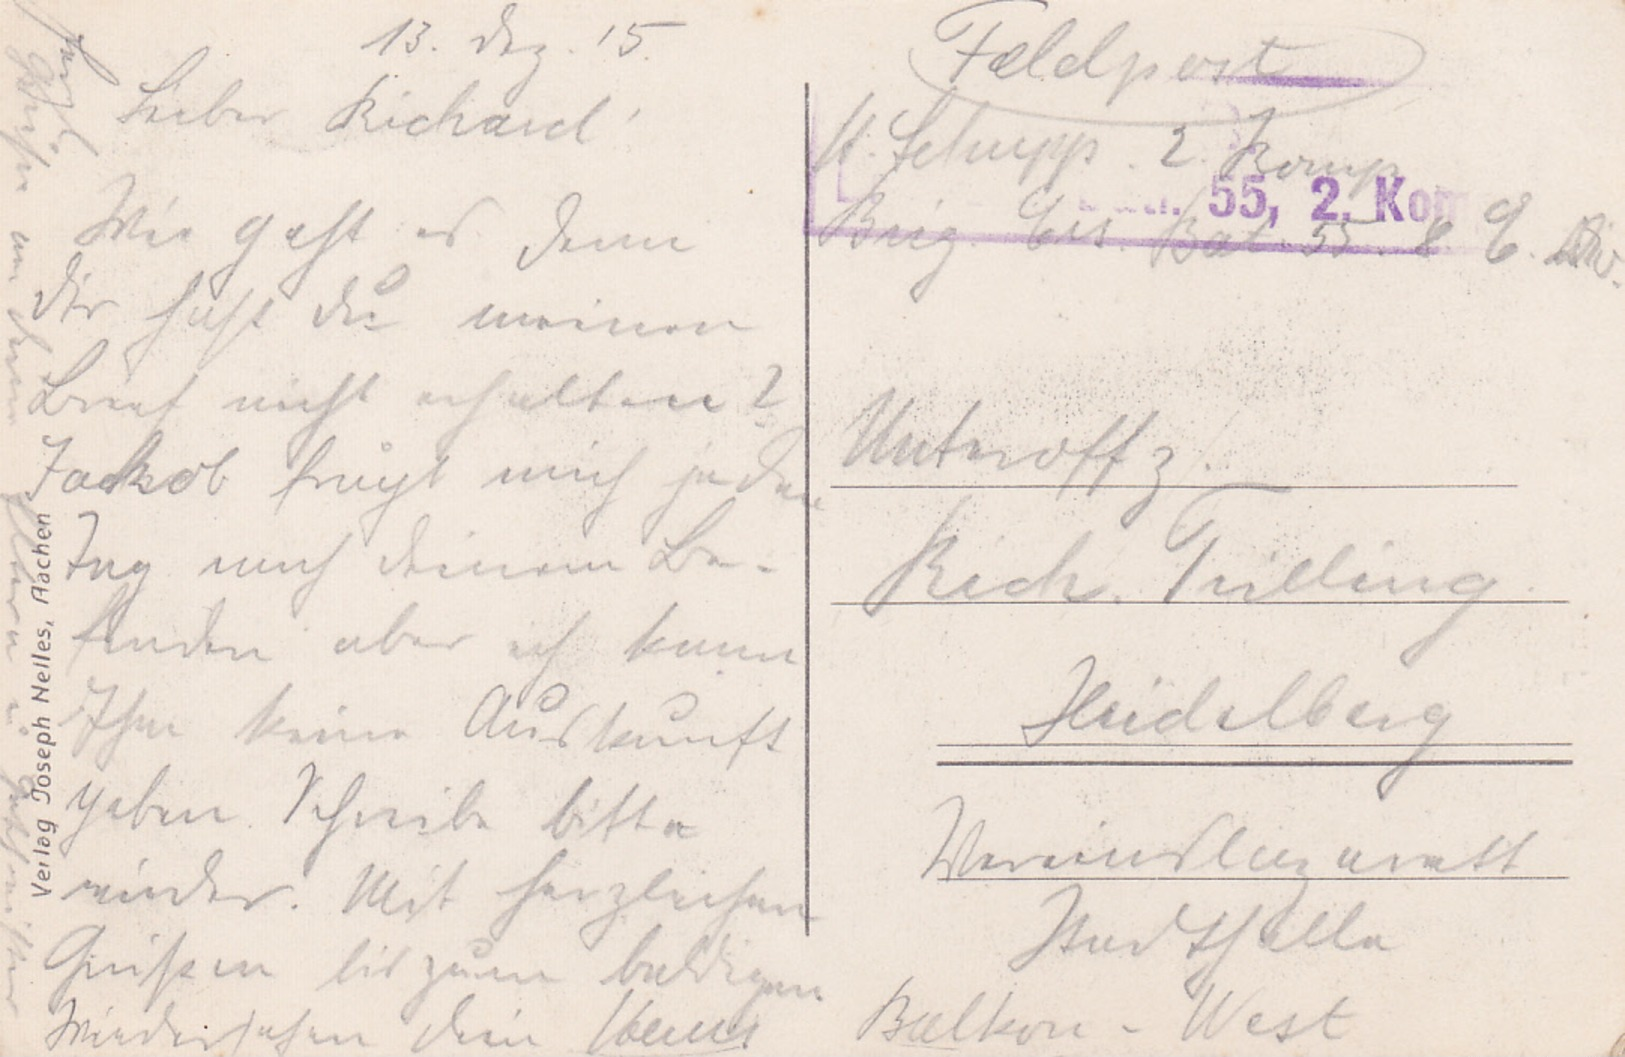 13. Dez. 15.
Lieber Richard!
Wie geht es denn
dir hast du meinen
Brief nicht erhalten?
Jackob frägt mich jeden
Tag nach deinem Be-
finden aber ich kann
Ihm keine Auskunft
geben. Schreibe bitte
wieder. Mit herzlichen
Grüßen bis zum baldigen
Wiedersehen dein
Grüße an deine Eltern u. Geschwister
Verlag Joseph Nelles, Aachen
Feldpost
H. Schupp. 2. Komp
55, 2. Kom
Brig. Ers. Bat. 55. 8. E. Div.
Unteroffz.
Rich. Trilling
Heidelberg
Vereinslazarett
Stadthalle
Balkon - West